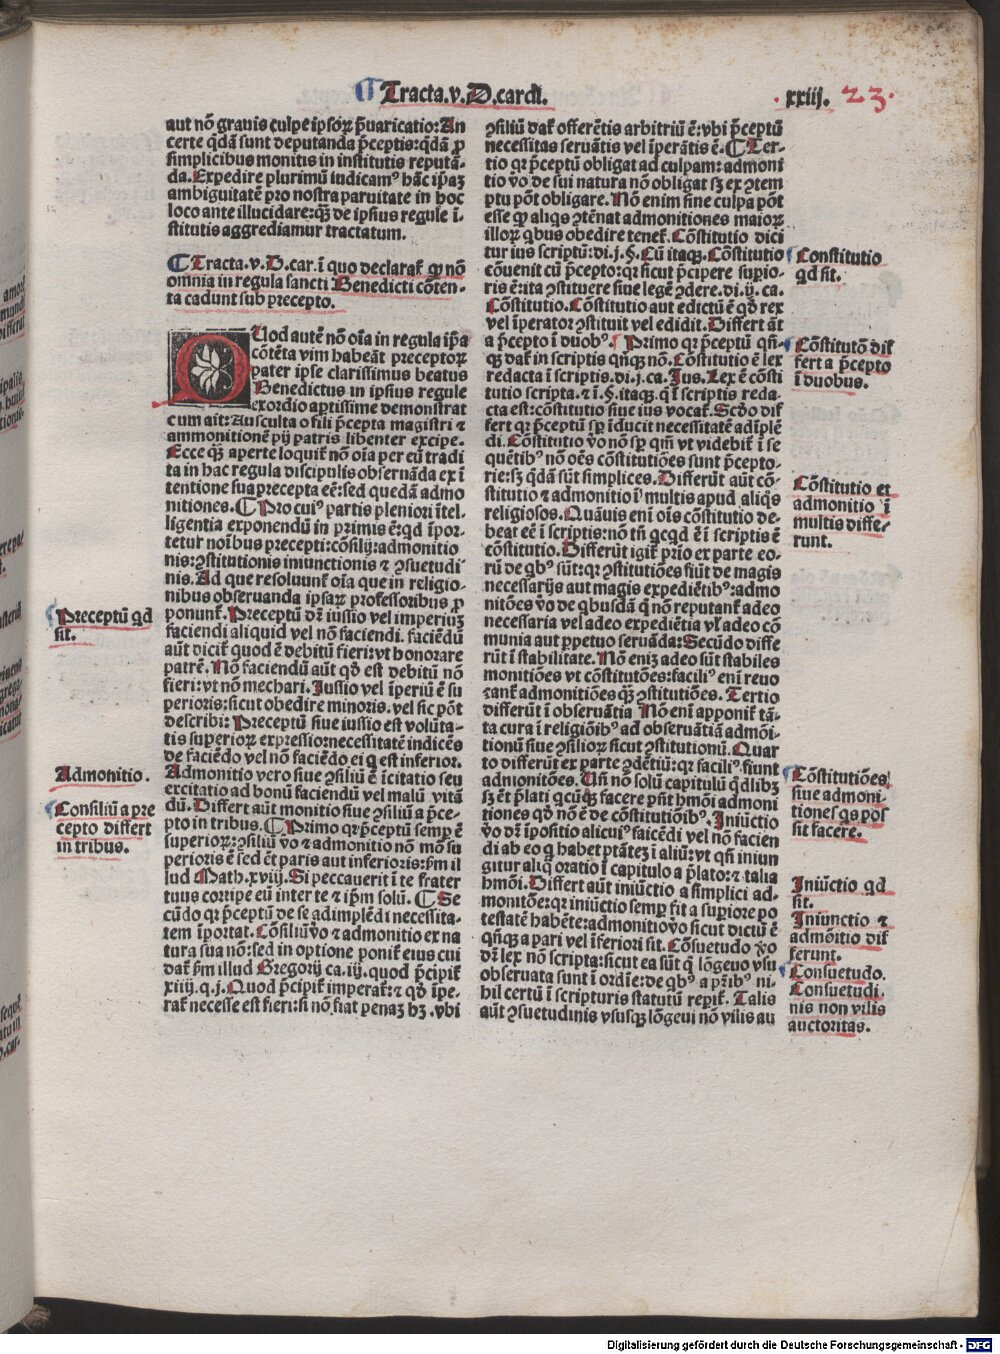 Tracta.v.D.cardi.
.xxiij. 23.
aut nō grauis culpe ipsoꝝ p̄uaricatio: An
certe q̄dā sunt deputanda p̄ceptis: q̄dā ꝓ
simplicibus monitis in institutis reputā-
da. Expedire plurimū iudicamꝰ hāc ip̄aꝫ
ambiguitatē pro nostra paruitate in hoc
loco ante illucidare: qꝫ de ipsius regule ī-
stitutis aggrediamur tractatum.
¶ Tracta.v.D.car. ī quo declaraꝉ ꝙ nō
omnia in regula sancti Benedicti cōten-
ta cadunt sub precepto.
QUod autē nō oīa in regula ip̄a
cōtēta vim habeāt preceptoꝝ
pater ipse clarissimus beatus
Benedictus in ipsius regule
exordio aptissime demonstrat
cum ait: Ausculta o fili p̄cepta magistri ⁊
ammonitionē pij patris libenter excipe.
Ecce qꝫ aperte loquiꝉ nō oīa per eū tradi
ta in hac regula discipulis obseruāda ex ī
tentione sua precepta eē: sed quedā admo
nitiones. ¶ Pro cuiꝰ partis pleniori ītel-
ligentia exponendū in primis ē: qd īpor-
tetur noībus precepti: cōsilij: admonitio
nis: ꝯstitutionis iniunctionis ⁊ ꝯsuetudi
nis. Ad que resoluunꝉ oīa que in religio-
nibus obseruanda ipsaꝝ professoribus ꝓ
ponunꝉ. Preceptū dꝛ iussio vel imperiuꝫ
faciendi aliquid vel nō faciendi. faciēdū
aut diciꝉ quod ē debitū fieri: vt honorare
patrē. Nō faciendū aūt qd est debitū nō
fieri: vt nō mechari. Jussio vel īperiū ē su
perioris: sicut obedire minoris. vel sic pōt
describi: Preceptū siue iussio est volūta-
tis superioꝝ expressio: necessitatē indicēs
de faciēdo vel nō faciēdo ei q est inferior.
Admonitio vero siue ꝯsiliū ē īcitatio seu
excitatio ad bonū faciendū vel malū vitā
dū. Differt aūt monitio siue ꝯsiliū a p̄ce-
pto in tribus. ¶ Primo qꝛ p̄ceptū semp ē
superioꝝ: ꝯsiliū vo ⁊ admonitio nō mō su
perioris ē sed et paris aut inferioris: ẜm il
lud Math.xviij. Si peccauerit ī te frater
tuus corripe eū inter te ⁊ ip̄m solū. ¶ Se
cūdo qꝛ p̄ceptū de se adimplēdi necessita-
tem īportat. Cōsiliū vo ⁊ admonitio ex na
tura sua nō: sed in optione poniꝉ eius cui
daꝉ ẜm illud Gregorij ca.iij. quod p̄cipiꝉ
xiiij.q.j. Quod p̄cipiꝉ imperaꝉ: ⁊ qd īpe-
raꝉ necesse est fieri: si nō fiat penaꝫ hꝫ. vbi
ꝯsiliū daꝉ offerētis arbitriū ē: vbi p̄ceptū
necessitas seruātis vel īperātis ē. ¶ Ter-
tio qꝛ p̄ceptū obligat ad culpam: admoni
tio vo de sui natura nō obligat sꝫ ex ꝯtem
ptu pōt obligare. Nō enim sine culpa pōt
esse ꝙ aliqs ꝯtēnat admonitiones maioꝝ
illoꝝ qbus obedire teneꝉ. Cōstitutio dici
tur ius scriptū: di.j.§. Cū itaqꝫ. Cōstitutio
cōuenit cū p̄cepto: qꝛ sicut p̄cipere superio-
ris ē: ita ꝯstituere siue legē ꝯdere. di.ij. ca.
Cōstitutio. Cōstitutio aut edictū ē qd rex
vel īperator ꝯstituit vel edidit. Differt āt
a p̄cepto ī duobꝰ. Primo qꝛ p̄ceptū qn̄-
qꝫ daꝉ in scriptis qn̄qꝫ nō. Cōstitutio ē lex
redacta ī scriptis. di.j.ca. Jus. Lex ē cōsti
tutio scripta. ⁊ ī.§. itaqꝫ. q̄ ī scriptis reda-
cta est: cōstitutio siue ius vocaꝉ. Scdo dif
fert qꝛ p̄ceptū sp īducit necessitatē adīplē
di. Cōstitutio vo nō sp qm̄ vt videbiꝉ ī se
quētibꝰ nō oēs cōstitutiōes sunt p̄cepto-
rie: sꝫ q̄dā sūt simplices. Differūt aūt cō-
stitutio ⁊ admonitio ī multis apud aliqs
religiosos. Quāuis eni ois cōstitutio de-
beat eē ī scriptis: nō tn̄ qcqd ē ī scriptis ē
cōstitutio. Differūt igiꝉ prio ex parte eo-
rū de qbꝰ sūt: qꝛ ꝯstitutiōes fiūt de magis
necessarijs aut magis expediētibꝰ: admo
nitōes vo de qbusdā q̄ nō reputanꝉ adeo
necessaria vel adeo expediētia vꝉ adeo cō
munia aut ꝑpetuo seruāda: Secūdo diffe
rūt ī stabilitate. Nō enī adeo sūt stabiles
monitiōes vt cōstitutōes: faciliꝰ eni reuo
cant admonitiōes qꝫ ꝯstitutiōes. Tertio
differūt ī obseruātia Nō eni apponiꝉ tā-
ta cura ī religiōibꝰ ad obseruātiā admōi-
tionū siue ꝯsilioꝝ sicut ꝯstitutionū. Quar
to differūt ex parte ꝯdētiū: qꝛ faciliꝰ fiunt
admonitōes. Uñ nō solū capitulū qdlibꝫ
sꝫ et p̄lati qcūqꝫ facere pn̄t hm̄oi admoni
tiones qd nō ē de cōstitutiōibꝰ. Jniūctio
vo dꝛ īpositio alicuiꝰ faicēdi vel nō facien
di ab eo q habet ptātē ī aliū: vt qn̄ iniun
gitur aliq̄ oratio ī capitulo a p̄lato: ⁊ talia
hm̄oi. Differt aūt iniūctio a simplici ad-
monitōe: qꝛ iniūctio semp fit a superiore po
testatē habēte: admonitio vo sicut dictū ē
qn̄qꝫ a pari vel īferiori fit. Cōsuetudo vo
dꝛ lex nō scripta: sicut ea sūt q̄ lōgeuo vsu
obseruata sunt ī ordīe: de qbꝰ a pꝛibꝰ ni-
hil certū ī scripturis statutū reperiꝉ. Talis
aūt ꝯsuetudinis vsusqꝫ lōgeui nō vilis au
Preceptū qd
sit.
Admonitio.
Consiliū a pre
cepto differt
in tribus.
Constitutio
qd sit.
Cōstitutō dif
fert a p̄cepto
ī duobus.
Cōstitutio et
admonitio ī
multis diffe-
runt.
Cōstitutiōes
siue admoni-
tiones qs pos
sit facere.
Jniūctio qd
sit.
Jniunctio ⁊
admōitio dif
ferunt.
Consuetudo.
Consuetudi.
nis non vilis
auctoritas.
Digitalisierung gefördert durch die Deutsche Forschungsgemeinschaft - DFG